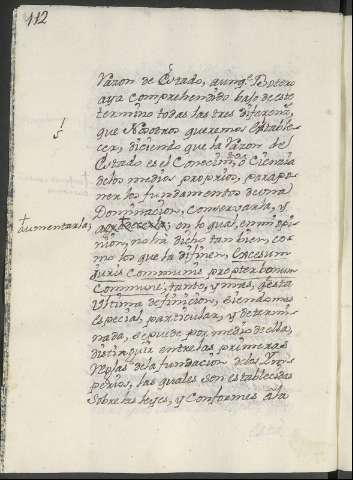 112
Razon de Estado, aunq.e Botero
aya comprehendido bajo de este
termino todas las tres diferenz.s
que Nosotros queremos estable-
cer, diciendo que la Razon de
Estado es el Conocim.to o Ciencia
de los medios proprios, para po-
ner los fundamentos de una
Dominacion, Conservarla, y
aumentarla,
en lo qual, en mi opi-
nion, no ha dicho tan bien, co-
mo los que la difinen, Excesum
iuris Communis propter bonum
Commune; tanto, y mas, q.e esta
Ultima definicion, siendo mas
especial, particular, y determi-
nada, se puede por medio de ella,
distinguir entre las primeras
Reglas de la fundacion de los Im-
perios, las quales son establecidas
sobre las leyes, y Conformes à la